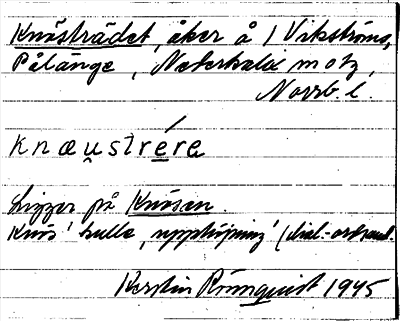 Knösträdet, åker å 1 Vikströms,
Pålänge, Nederkalix motz,
Norrb. l.
knæustrére
Ligger på Knösen.
Knös 'kulle, upphöjning' (dial.-ordsaml.
Kerstin Rönnquist 1945